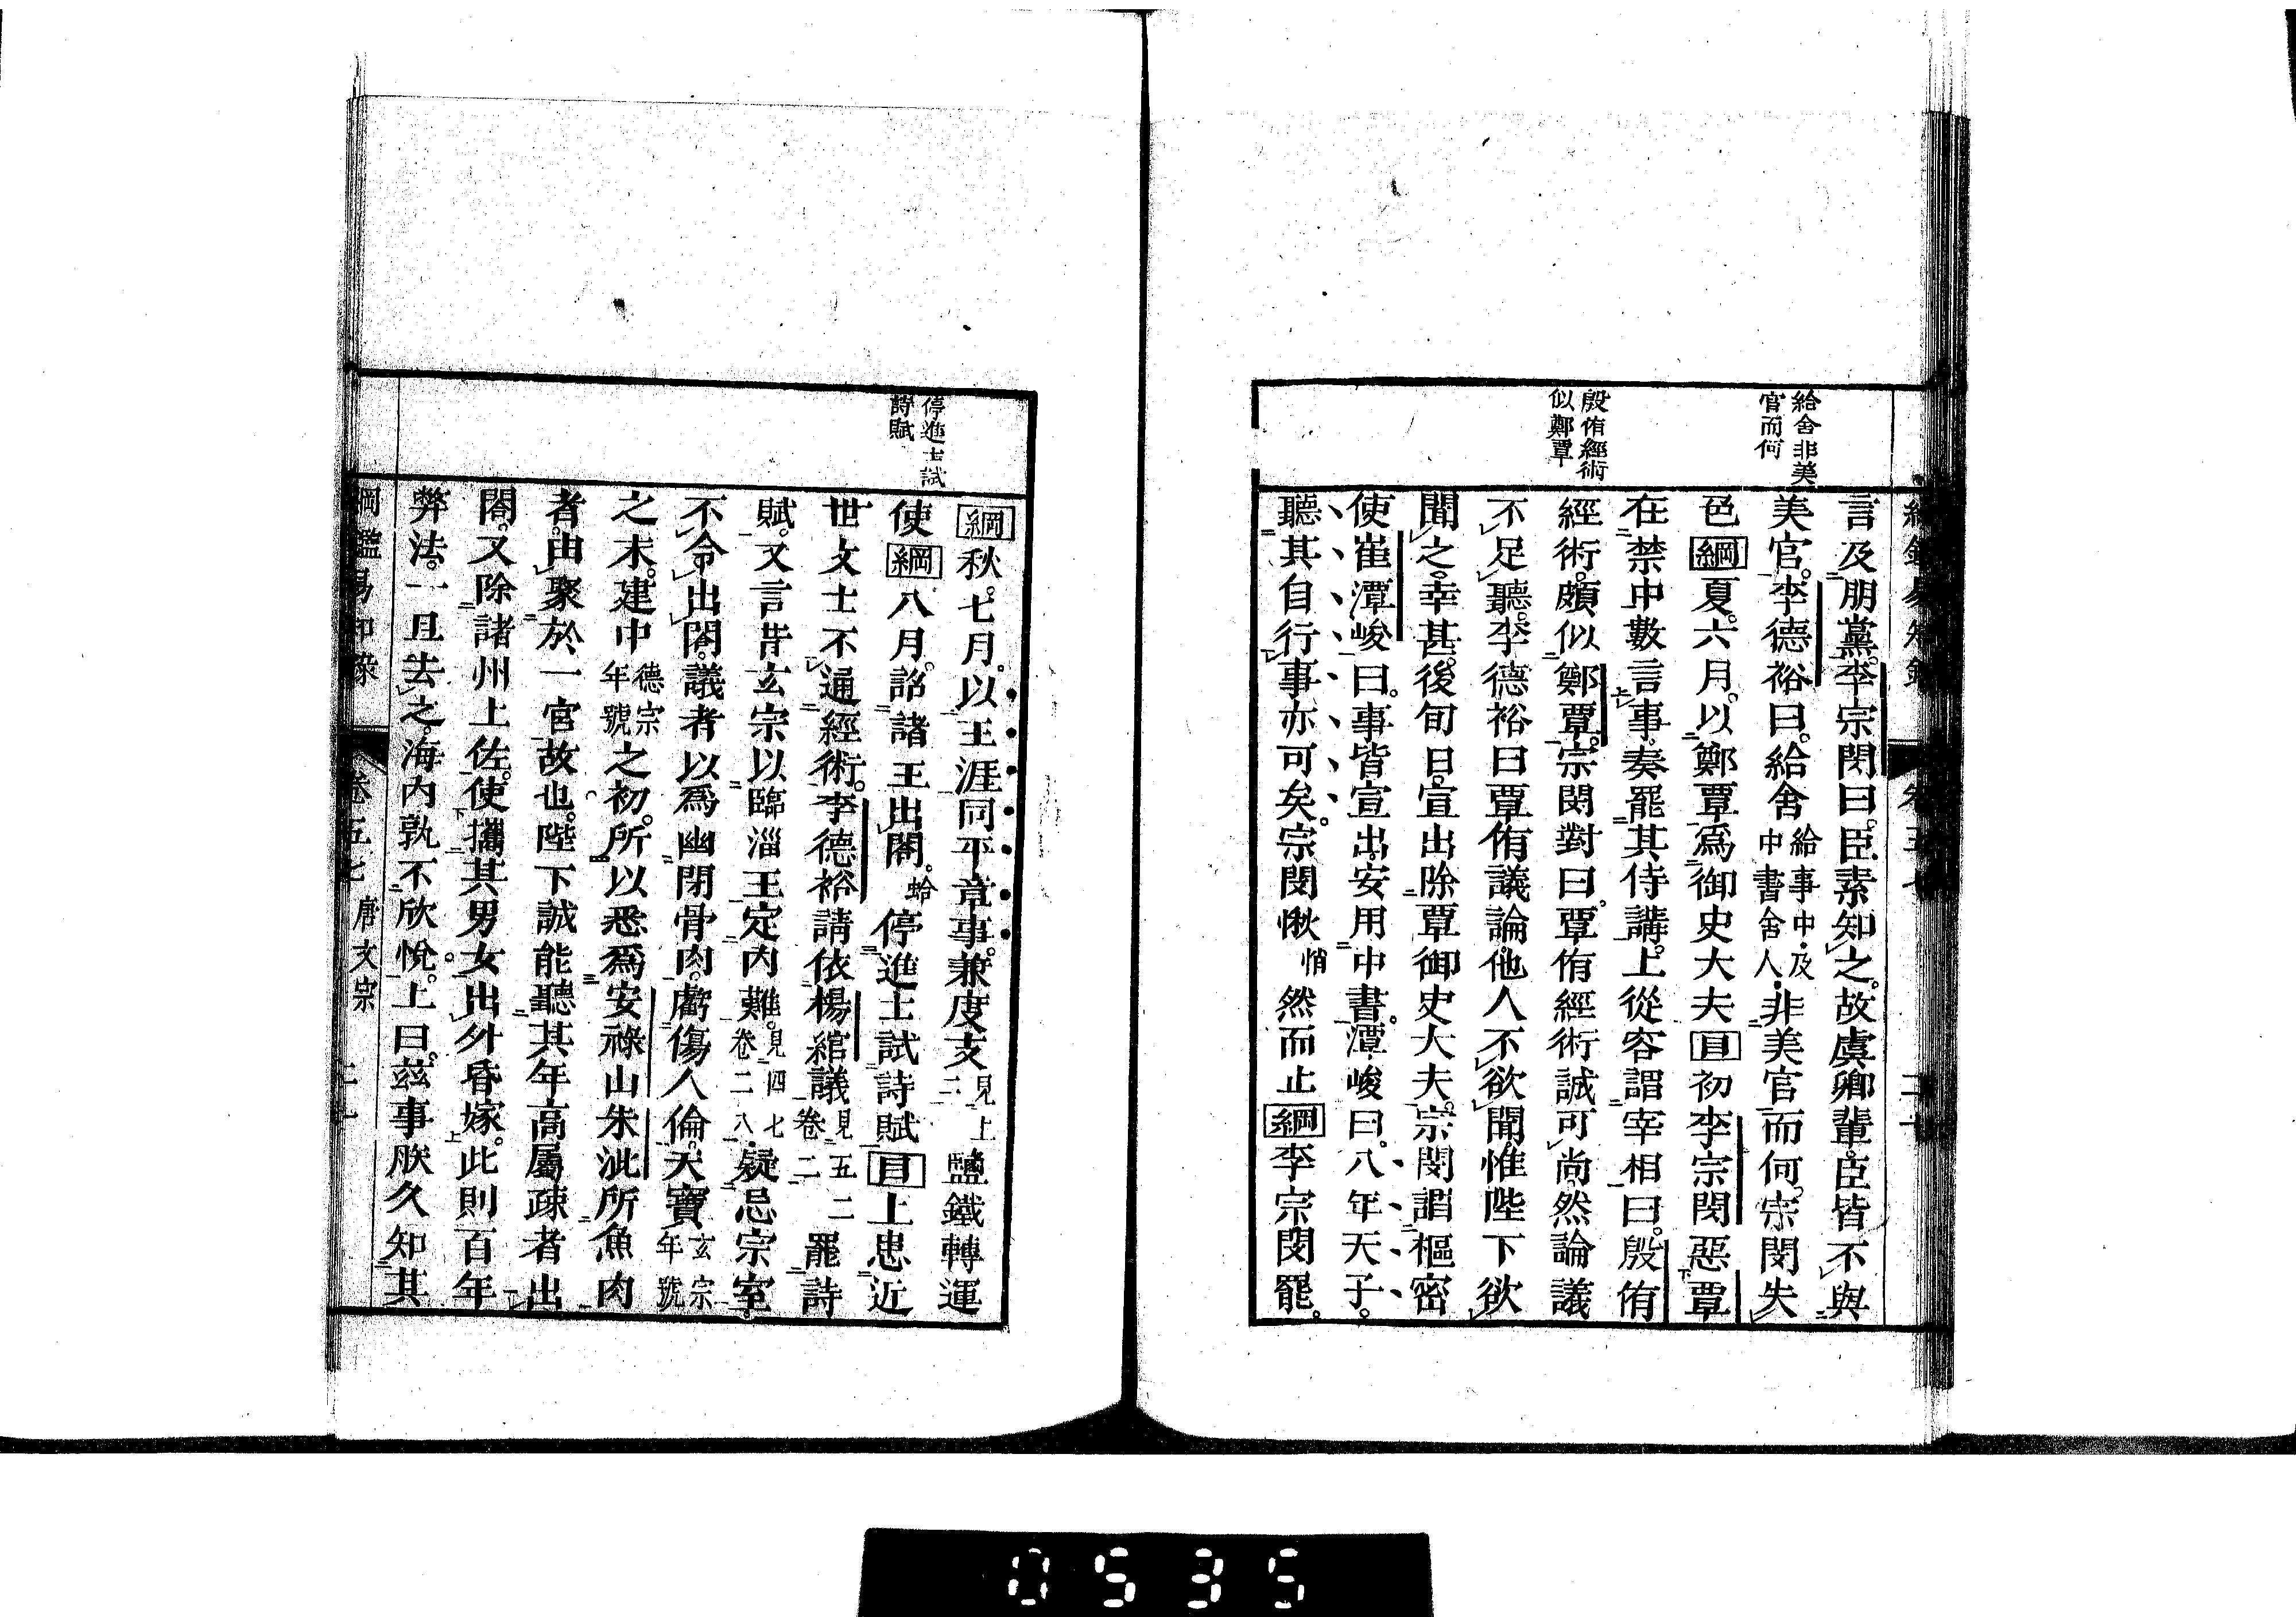 給舍非美
官而何
殷侑經術
似鄭覃
言及朋黨。李宗閔曰。臣素知之。故虞卿輩。臣皆不與
美官。李德裕曰。給舍給事中。及中書舍人。非美官而何。宗閔失
色綱夏。六月。以鄭覃爲御史大夫目初李宗閔惡覃
在禁中數言事。奏罷其侍講。上從容謂宰相曰。殷侑
經術。頗似鄭覃。宗閔對曰。覃侑經術誠可尚。然論議
不足聽。李德裕曰覃侑議論。他人不欲聞。惟陛下欲
聞之。幸甚。後旬日。宣出除覃御史大夫。宗閔謂樞密
使崔潭峻曰。事皆宣出。安用中書。潭峻曰。八年天子。
聽其自行事亦可矣。宗閔愀悄然而止綱李宗閔罷。
停進士試
詩賦
綱秋。七月。以王涯同平章事。兼度支見上三鹽鐵轉運
使綱八月。詔諸王出閤。蛤停進士試詩賦目上患近
世文士不通經術。李德裕請依楊綰議見五二卷二罷詩
賦。又言昔玄宗以臨淄王定內難。見四七卷二八疑忌宗室。
不令出閤。議者以爲幽閉骨肉。虧傷人倫。天寶玄宗年號
之末。建中德宗年號之初。所以悉爲安祿山朱泚所魚肉
者。由聚於一官故也。陛下誠能聽其年高屬疎者出
閤。又除諸州上佐。使攜其男女出外昏嫁。此則百年
弊法。一旦去之。海內孰不欣悅。上曰。茲事朕久知其
綱鑑易知錄 卷五七 唐文宗